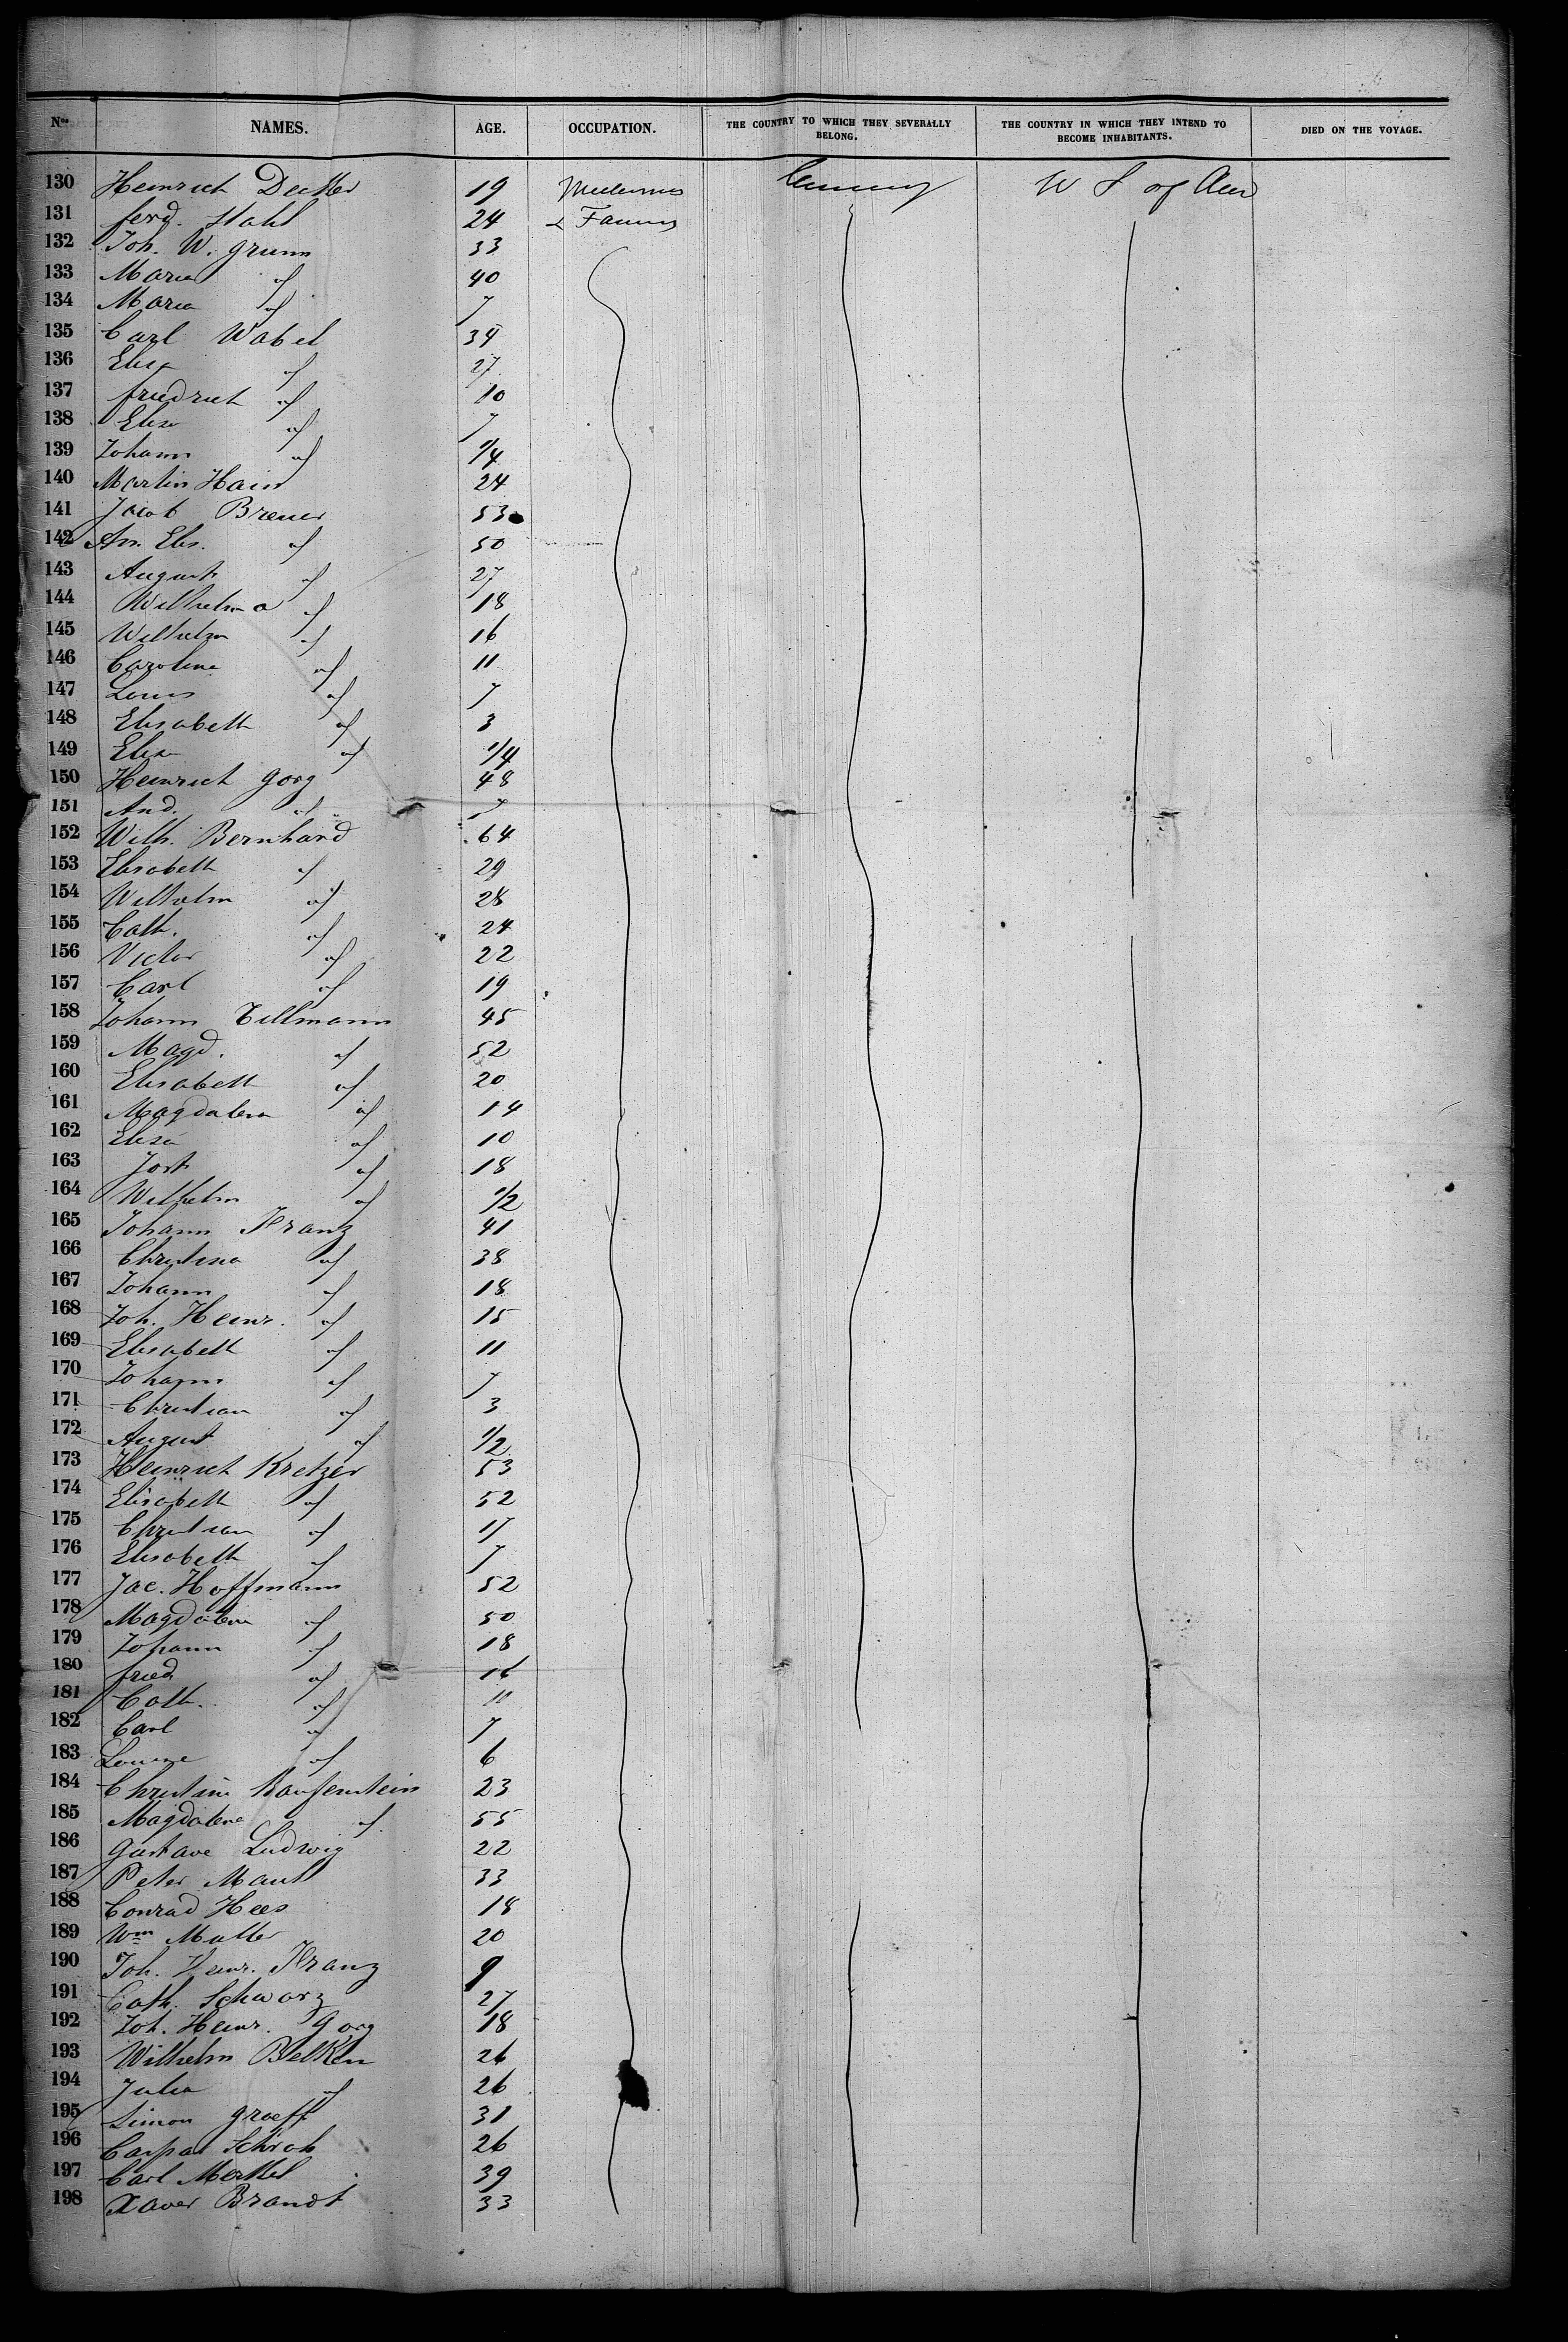 Nos. NAMES. AGE. OCCUPATION. THE COUNTRY TO WHICH THEY SEVERALLY BELONG. THE COUNTRY IN WHICH THEY INTEND TO BECOME INHABITANTS. DIED ON THE VOYAGE.
130 Heinrich Decker 19 Germany U S of Am
131 Ferd. Stahl 24 & Farmers
132 Joh. W. Grumm 33
133 Maria " 40
134 Maria " 7
135 Carl Wabel 34
136 Elisa " 27
137 Friedrich " 10
138 Elisa " 7
139 Johann " 1/4
140 Martin Hain 24
141 Jacob Breuer 53
142 An. Elis. " 50
143 August " 27
144 Wilhelma " 18
145 Wilhelm " 16
146 Carolina " 11
147 Louis " 7
148 Elisabeth " 3
149 Elisa " 1/4
150 Heinrich Gorg 48
151 And. " 7
152 Wilh. Bernhard 64
153 Elisabeth " 29
154 Wilhelm " 28
155 Cath. " 24
156 Victor " 22
157 Carl " 19
158 Johann Tillmann 45
159 Magd. " 52
160 Elisabeth " 20
161 Magdalena " 14
162 Elisa " 10
163 Jost " 18
164 Wilhelm " 1/2
165 Johann Kranz 41
166 Christina " 38
167 Johann " 18
168 Joh. Heinr. " 15
169 Elisabeth " 11
170 Johann " 7
171 Christian " 3
172 August " 1/2
173 Heinrich Kretzer 53
174 Elisabeth " 52
175 Christian " 17
176 Elisabeth " 7
177 Jac. Hoffmann 52
178 Magdalena " 50
179 Johann " 18
180 Fried. " 16
181 Cath. " 11
182 Carl " 7
183 Louise " 6
184 Christine 23
185 Magdalena " 55
186 Gustave Ludwig 22
187 Peter Maul 33
188 Conrad Hees 18
189 Wm Muller 20
190 Joh. Heinr. Kranz 9
191 Cath. Schwarz 27
192 Joh. Heinr. Gorg 18
193 Wilhelm Belken 26
194 Julia " 26
195 Simon Graeff 31
196 Caspar Schrok 26
197 Carl Merkel 39
198 Xaver Brandt 33